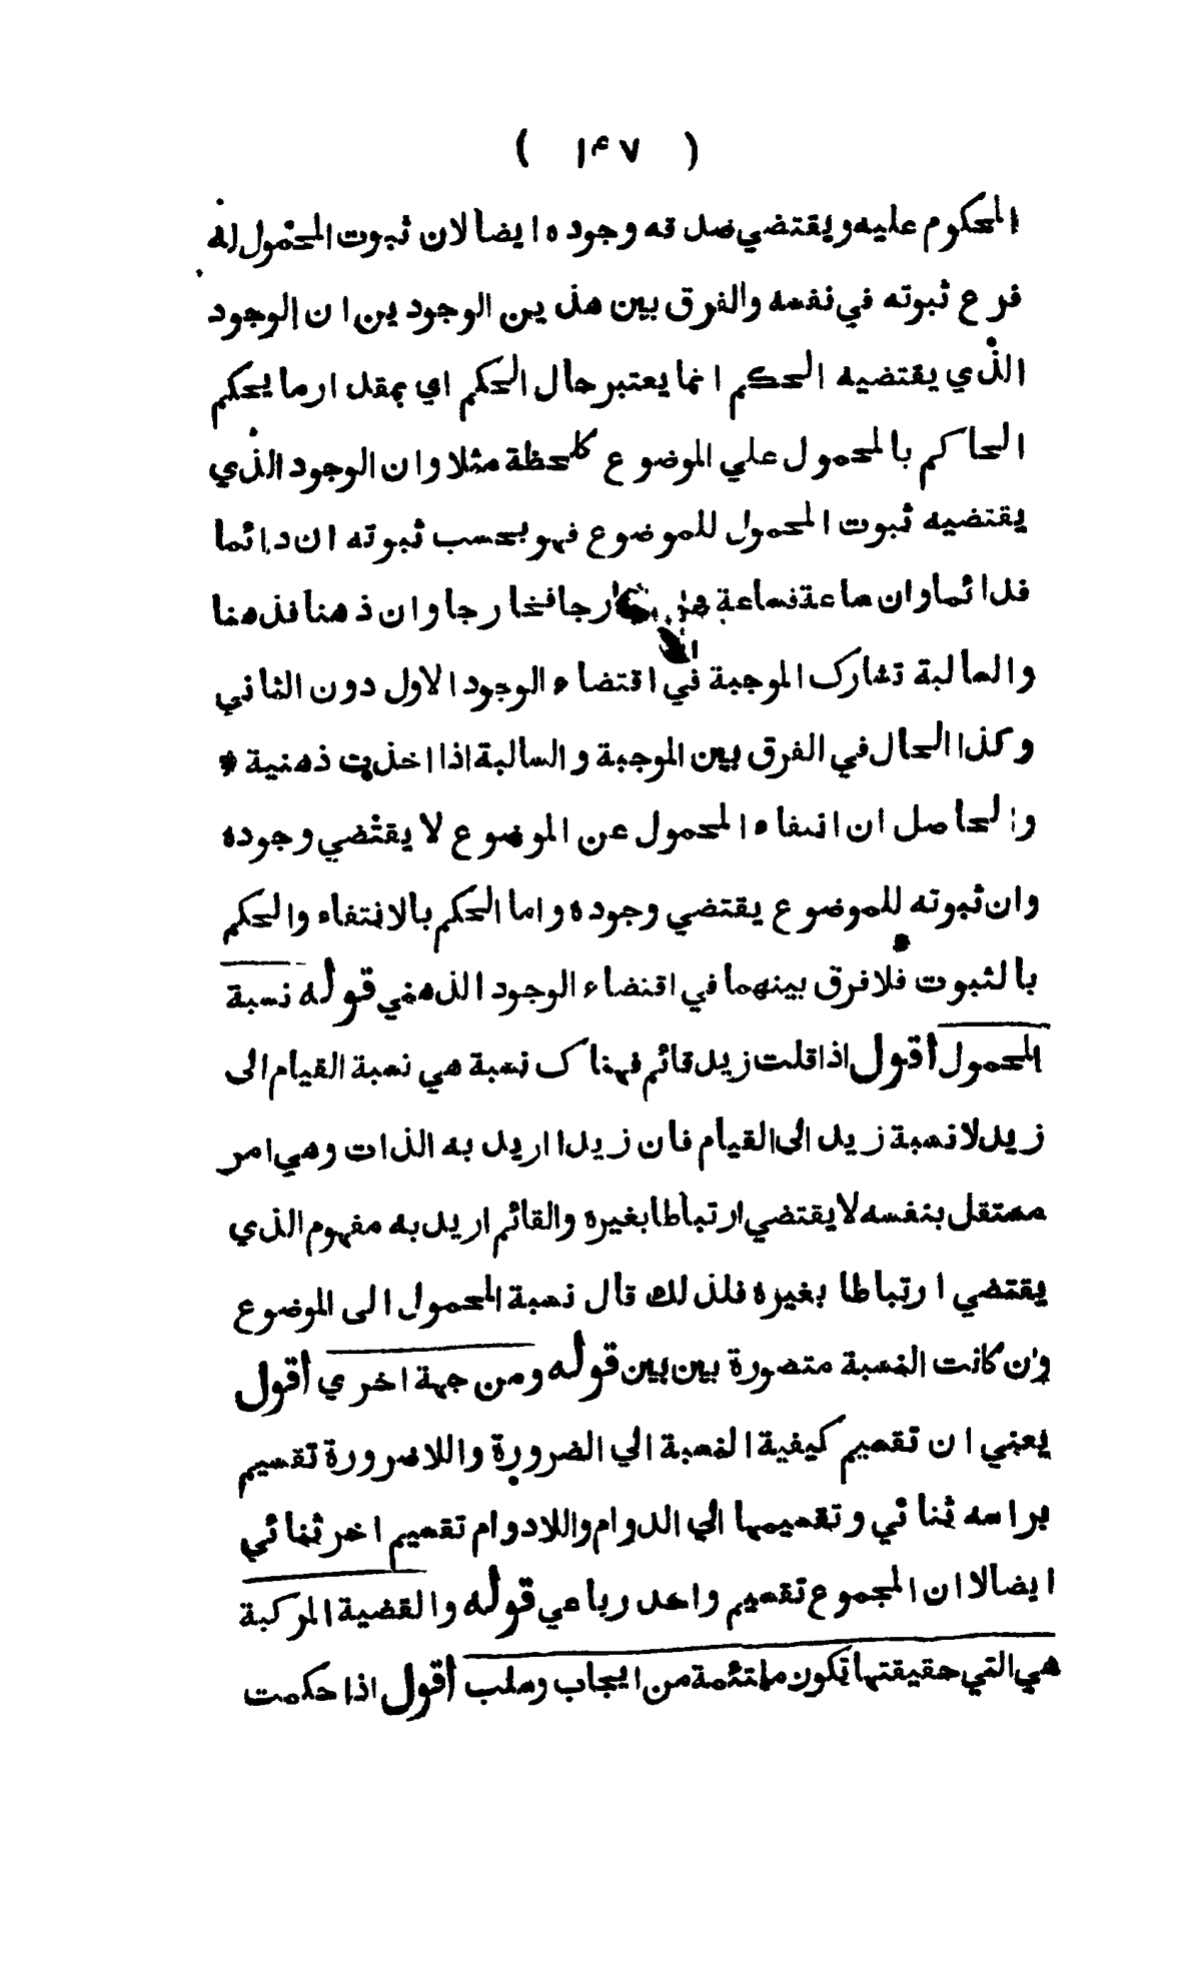 ( ١٤٧ )
المحكوم عليه ويقتضي صدقه وجوده ايضا لان ثبوت المحمول له
فرع ثبوته في نفسه والفرق بين هذين الوجودين ان الوجود
الذي يقتضيه الحكم انما يعتبر حال الحكم اي بمقدار ما يحكم
الحاكم بالمحمول علي الموضوع كلحظة مثلا وان الوجود الذي
يقتضيه ثبوت المحمول للموضوع فهو بحسب ثبوته ان دائما
فدائما وان ساعة فساعة خارجا فخارجا وان ذهنا فذهنا
والسالبة تشارك الموجبة في اقتضاء الوجود الاول دون الثاني
وكذا الحال في الفرق بين الموجبة والسالبة اذا اخذت ذهنية *
والحاصل ان انتفاء المحمول عن الموضوع لا يقتضي وجوده
وان ثبوته للموضوع يقتضي وجوده واما الحكم بالانتفاء والحكم
بالثبوت فلا فرق بينهما في اقتضاء الوجود الذهني قوله نسبة
المحمول أقول اذا قلت زيد قائم فهناك نسبة هي نسبة القيام الى
زيد لا نسبة زيد الى القيام فان زيدا اريد به الذات وهي امر
مستقل بنفسه لا يقتضي ارتباطا بغيره والقائم اريد به مفهوم الذي
يقتضي ارتباطا بغيره فلذلك قال نسبة المحمول الى الموضوع
وان كانت النسبة متصورة بين بين قوله ومن جهة اخري أقول
يعني ان تقسيم كيفية النسبة الي الضرورة واللاضرورة تقسيم
براسه ثنائي وتقسيمها الي الدوام واللادوام تقسيم اخر ثنائي
ايضا لا ان المجموع تقسيم واحد رباعي قوله والقضية المركبة
هي التي حقيقتها تكون ملتئمة من ايجاب وسلب أقول اذا حكمت